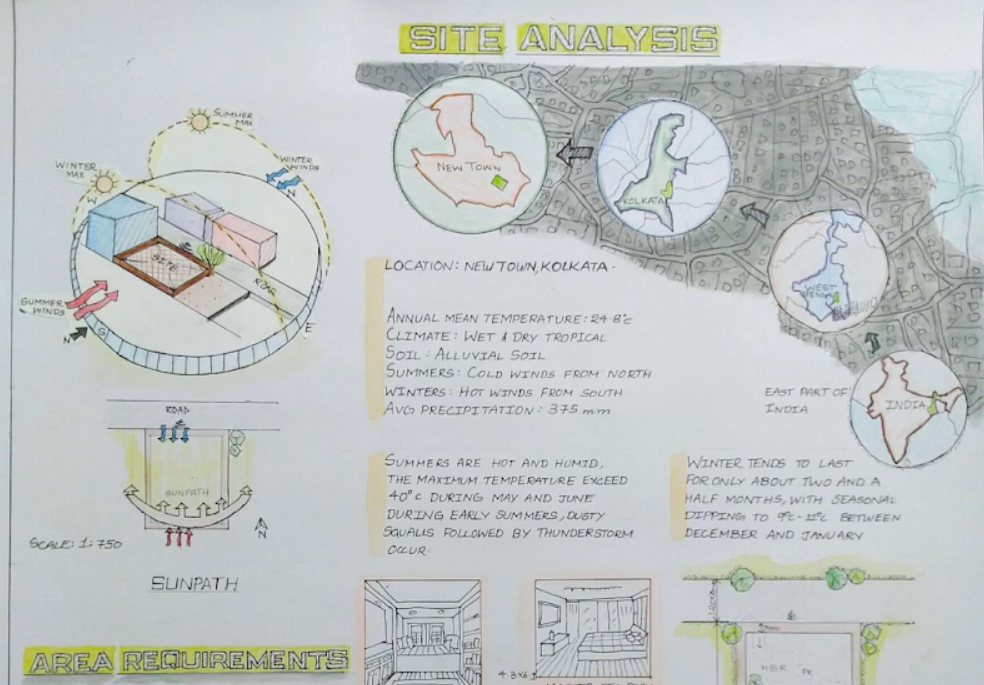 SITE ANALYSIS
SUMMER
MAX
WINTER
MAX
WINTER
WINDS
N
W
SITE
ROAD
SUMMER
WINDS
S
N
E
NEW TOWN
KOLKATA
WEST
BENGAL
INDIA
EAST PART OF
INDIA
LOCATION: NEW TOWN, KOLKATA.
ANNUAL MEAN TEMPERATURE: 24.8°C
CLIMATE: WET & DRY TROPICAL
SOIL: ALLUVIAL SOIL
SUMMERS: COLD WINDS FROM NORTH
WINTERS: HOT WINDS FROM SOUTH
AVG PRECIPITATION: 375 mm
SUMMERS ARE HOT AND HUMID,
THE MAXIMUM TEMPERATURE EXCEED
40°C DURING MAY AND JUNE
DURING EARLY SUMMERS, DUSTY
SQUALLS FOLLOWED BY THUNDERSTORM
OCCUR.
WINTER TENDS TO LAST
FOR ONLY ABOUT TWO AND A
HALF MONTHS, WITH SEASONAL
DIPPING TO 9°C-11°C BETWEEN
DECEMBER AND JANUARY
ROAD
SUNPATH
N
SCALE: 1:750
SUNPATH
AREA REQUIREMENTS